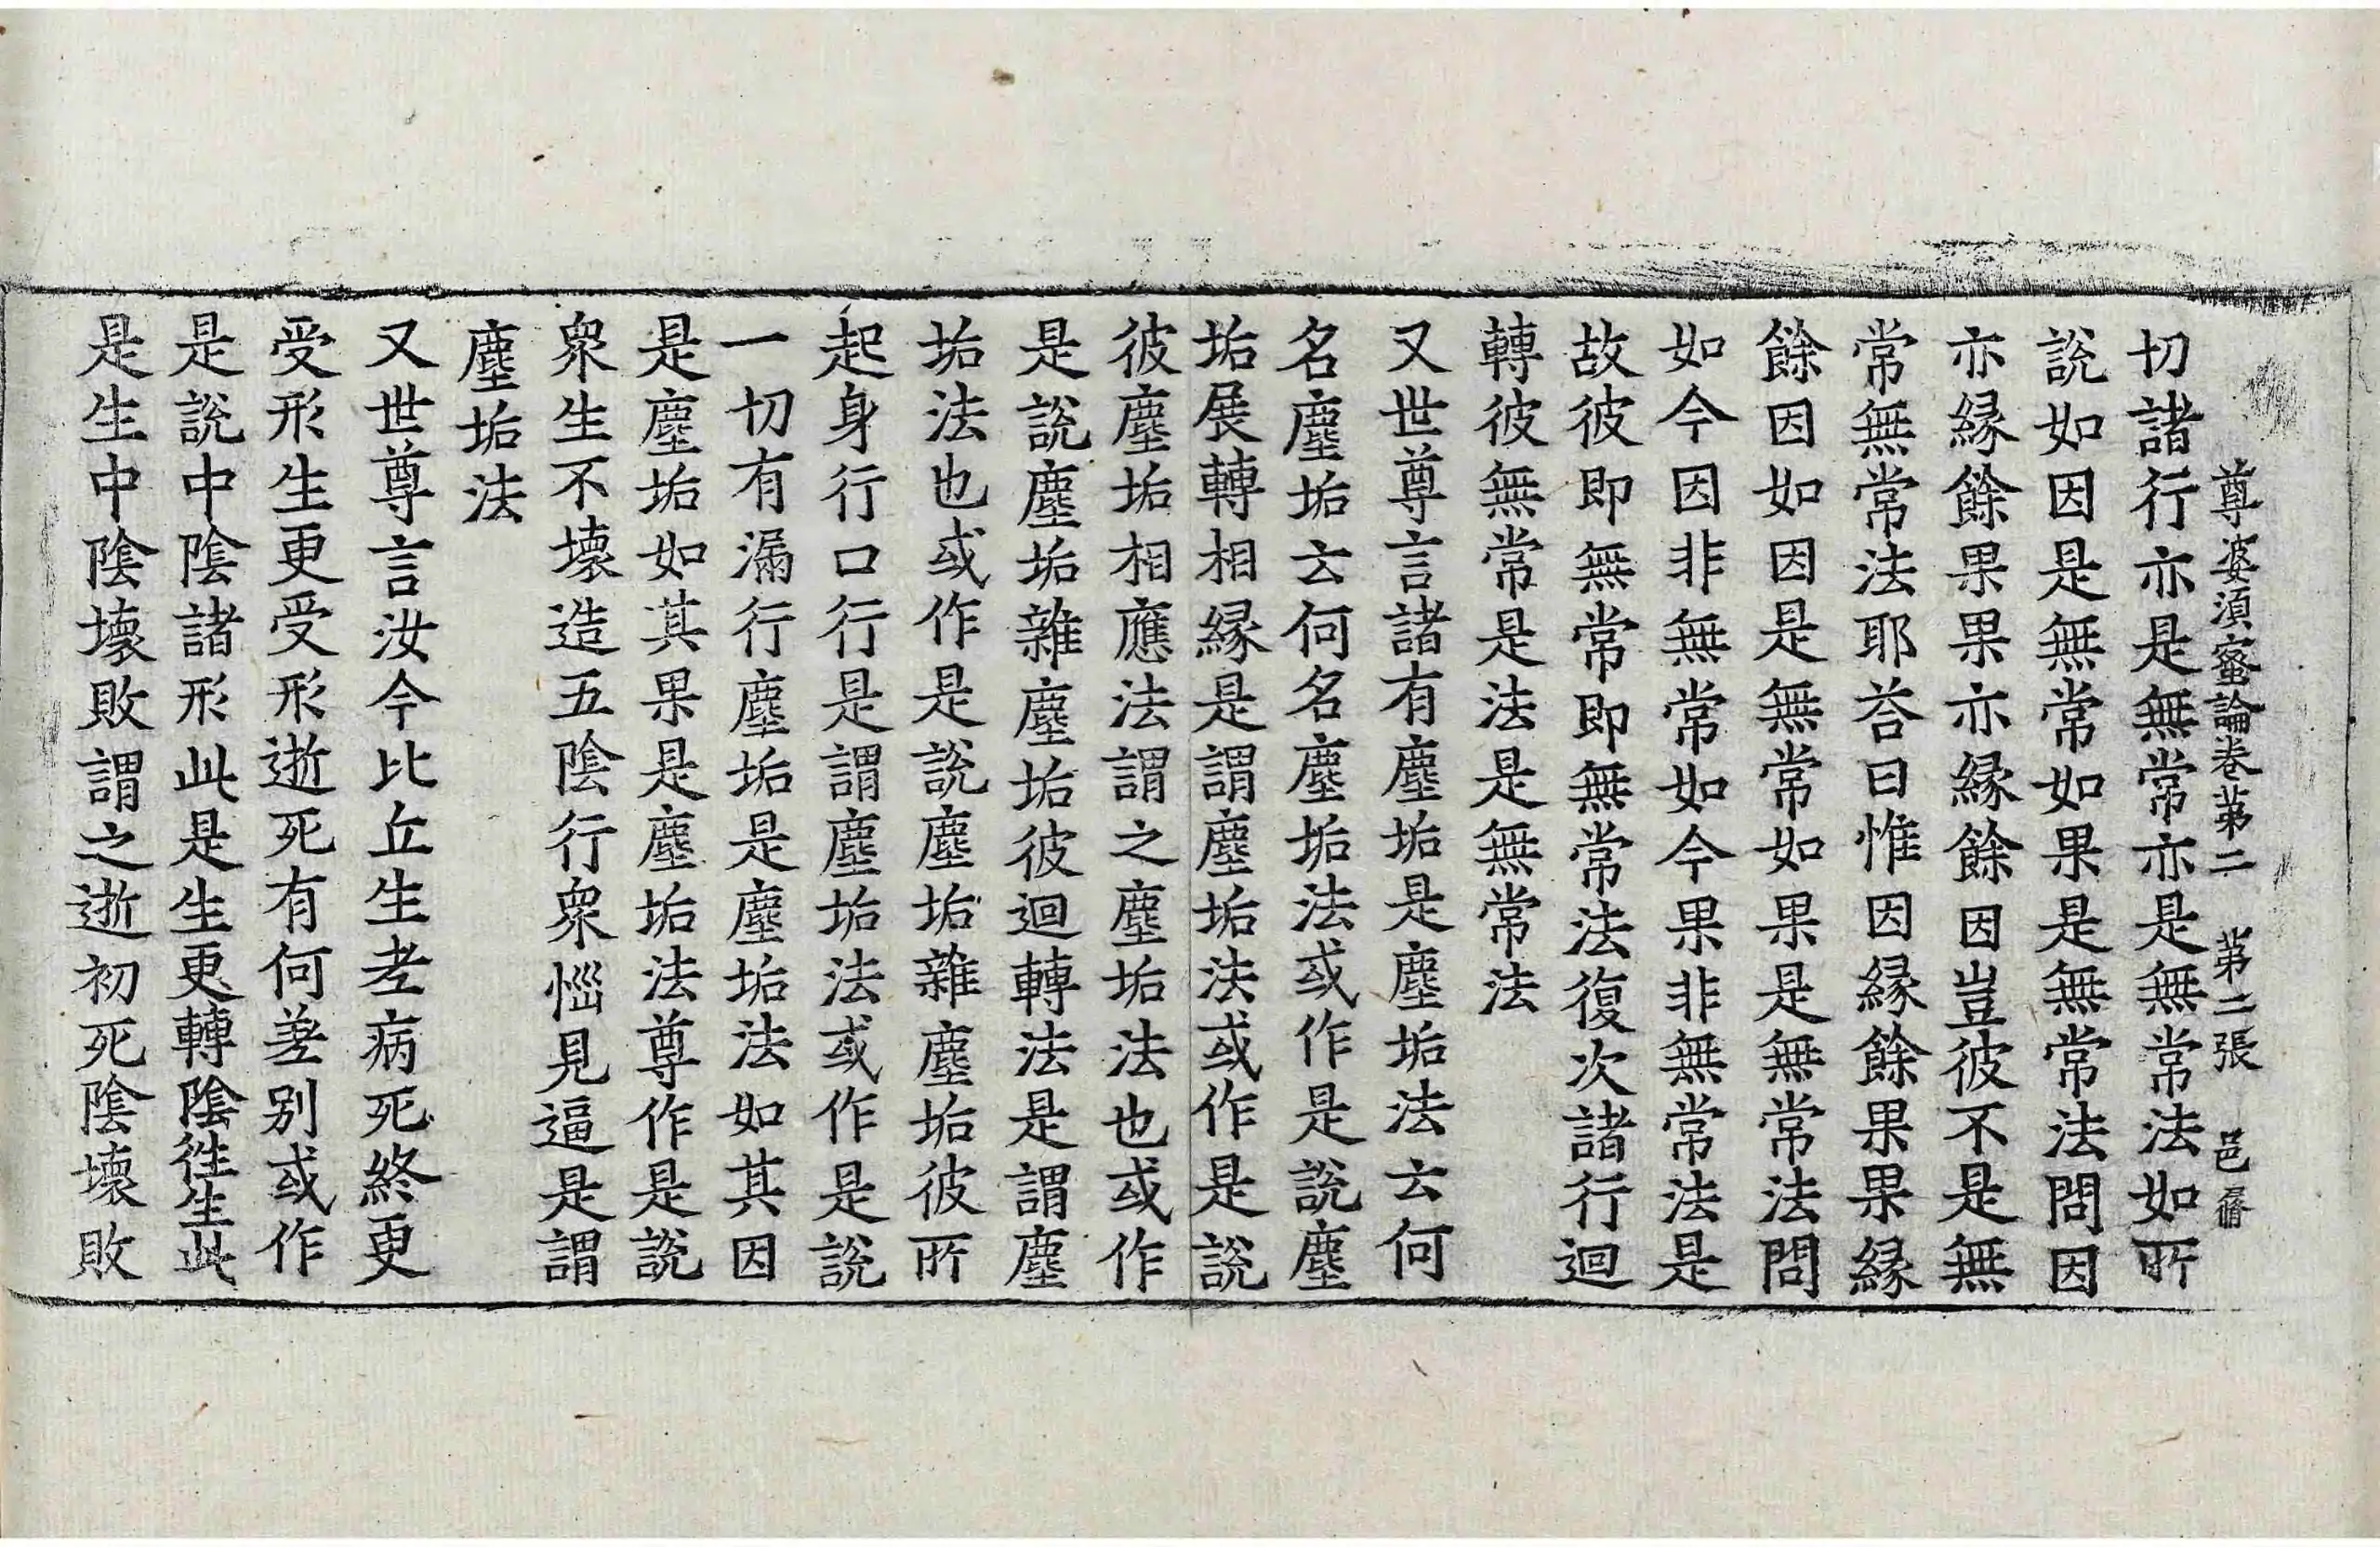 尊婆須蜜論卷苐二 苐二張 邑
切諸行亦是無常亦是無常法如所
說如因是無常如果是無常法問因
亦縁餘果果亦縁餘因豈彼不是無
常無常法耶荅曰惟因縁餘果果縁
餘因如因是無常如果是無常法問
如今因非無常如今果非無常法是
故彼即無常即無常法復次諸行迴
轉彼無常是法是無常法
又世尊言諸有塵垢是塵垢法云何
名塵垢云何名塵垢法或作是說塵
垢展轉相縁是謂塵垢法或作是說
彼塵垢相應法謂之塵垢法也或作
是說塵垢雜塵垢彼迴轉法是謂塵
垢法也或作是說塵垢雜塵垢彼所
起身行口行是謂塵垢法或作是說
一切有漏行塵垢是塵垢法如其因
是塵垢如其果是塵垢法尊作是說
衆生不壞造五陰行衆惱見逼是謂
塵垢法
又世尊言汝今比丘生老病死終更
受形生更受形逝死有何差別或作
是說中陰諸形此是生更轉陰徃生此
是生中陰壞敗謂之逝初死陰壞敗